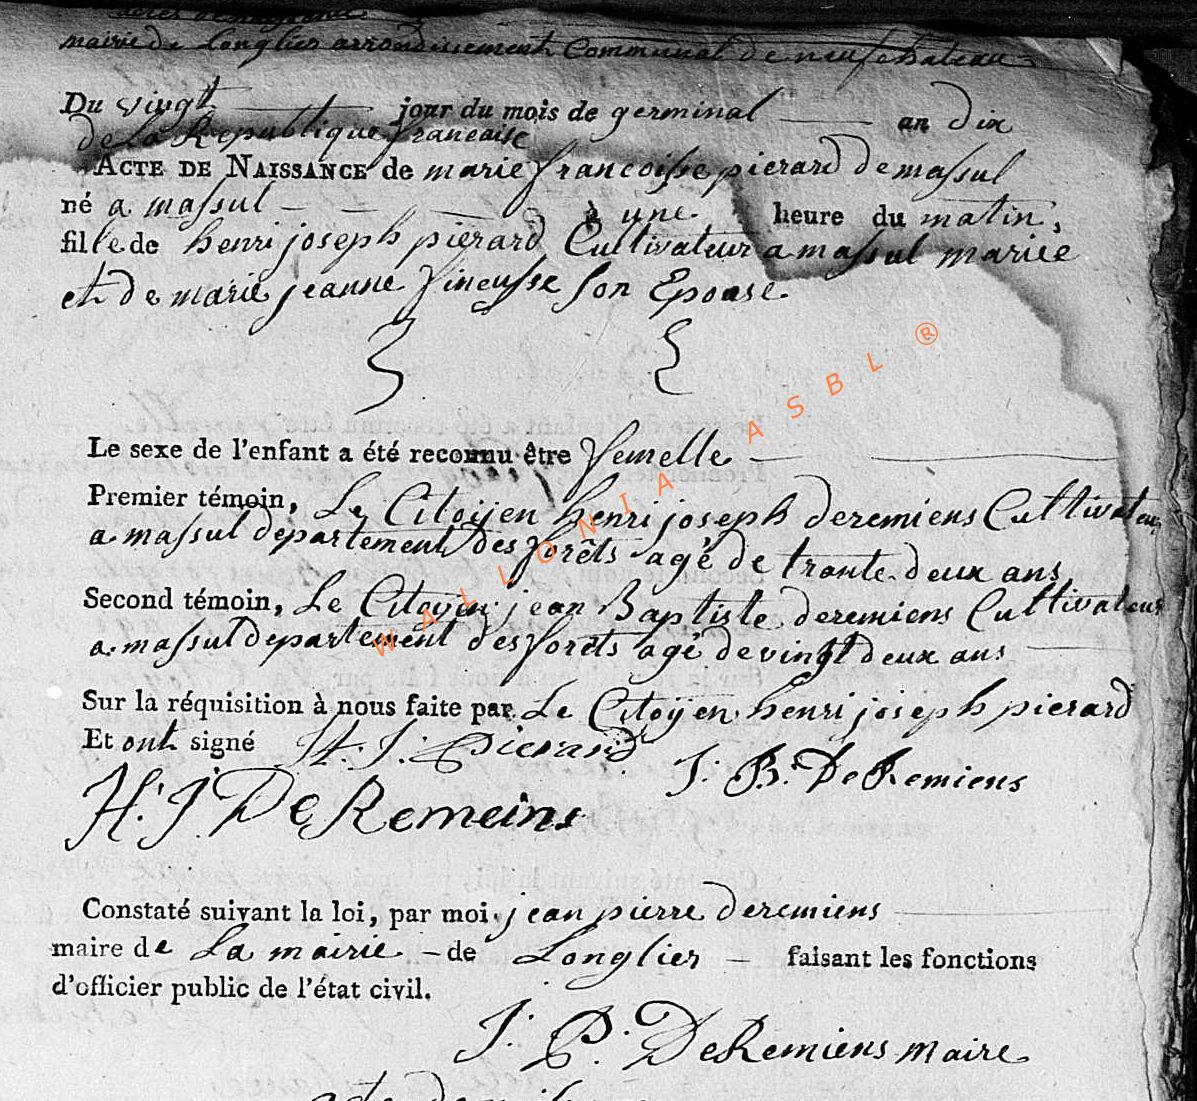 mairie de Longlier arrondissement Communal de neufchateau
Du vingt jour du mois de germinal an dix
de La Republique francaise
ACTE DE NAISSANCE de marie francoisse pierard de massul
né a massul à une heure du matin,
fille de henri joseph pierard Cultivateur a massul mariee
et de marie jeanne fineusse son Epouse.
Le sexe de l'enfant a été reconnu être femelle
Premier témoin, Le Citoijen henri joseph deremiens Cultivateur
a massul departement des forêts agé de trante deux ans
Second témoin, Le Citoyin jean Baptiste deremiens Cultivateur
a massul departement des forêts agé de vingt deux ans
Sur la réquisition à nous faite par Le Citoijen henri joseph pierard
Et ont signé H. J. Pierard
J. B. DeRemiens
H. J. DeRemeins
Constaté suivant la loi, par moi jean pierre deremiens
maire de La mairie de Longlier faisant les fonctions
d'officier public de l'état civil.
J. P. DeRemiens maire
WALLONIA ASBL ®